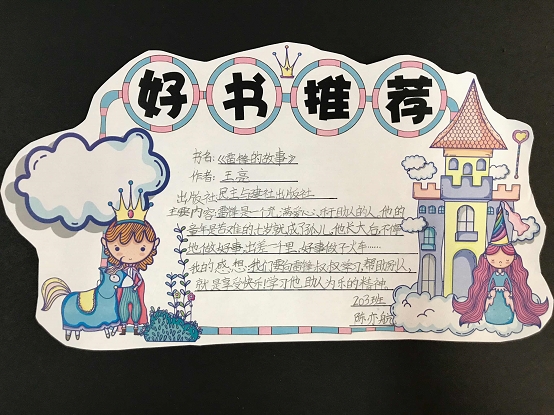 好书推荐
书名:《雷锋的故事》
作者: 王亮
出版社 民主与建社出版社
主要内容: 雷锋是一个充满爱心、乐于助人的人,他的
童年是苦难的七岁就成了孤儿,他长大后不停
地做好事,出差一千里,好事做了火车……
我的感想: 我们要向雷锋叔叔学习,帮助别人,
就是享受快乐!学习他助人为乐的精神。
203班
陈亦航